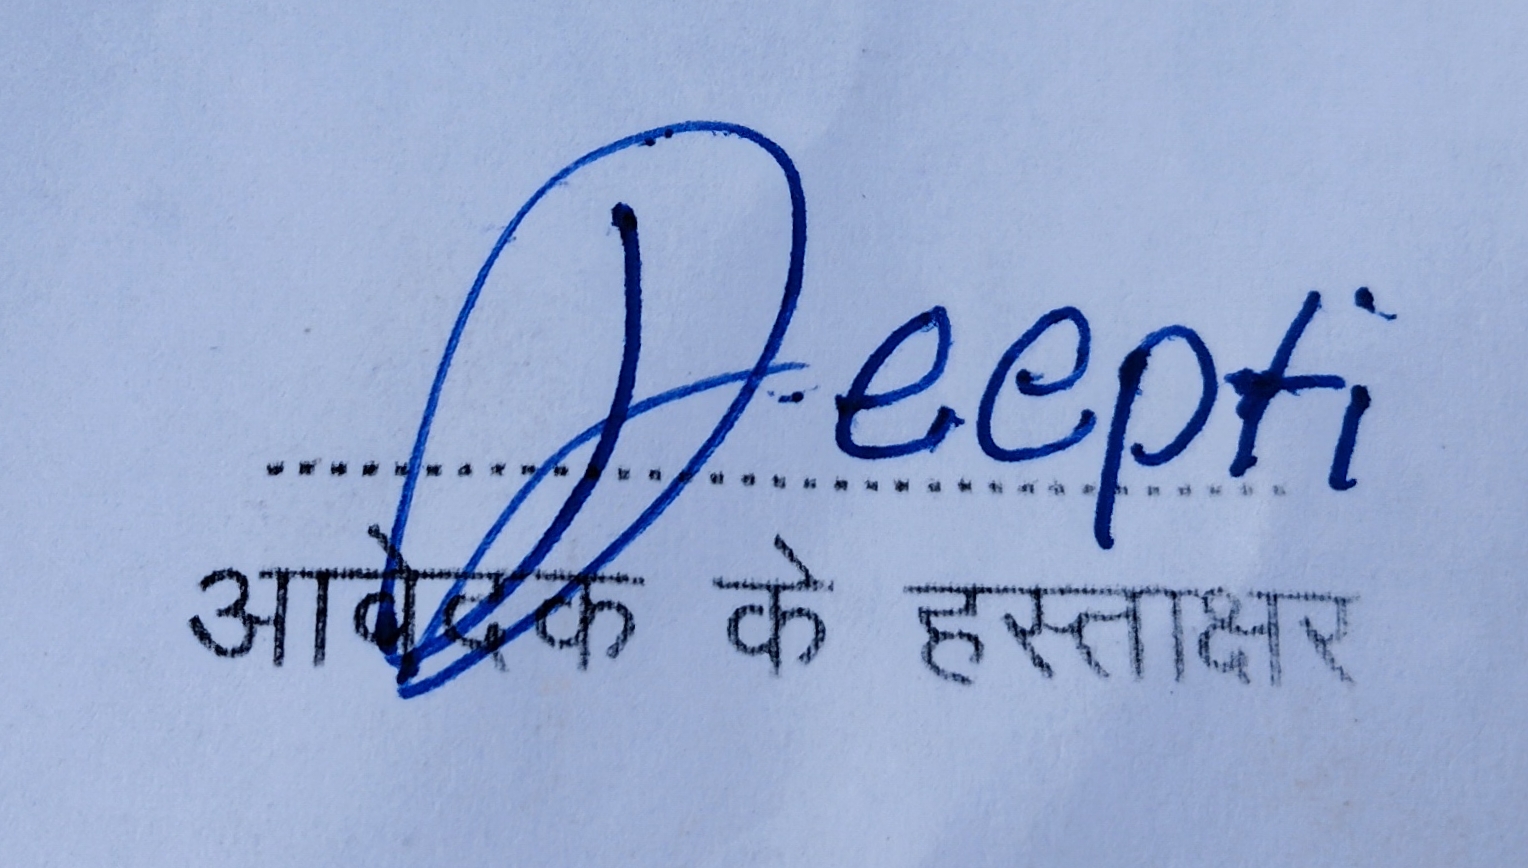 Deepti
आवेदक के हस्ताक्षर